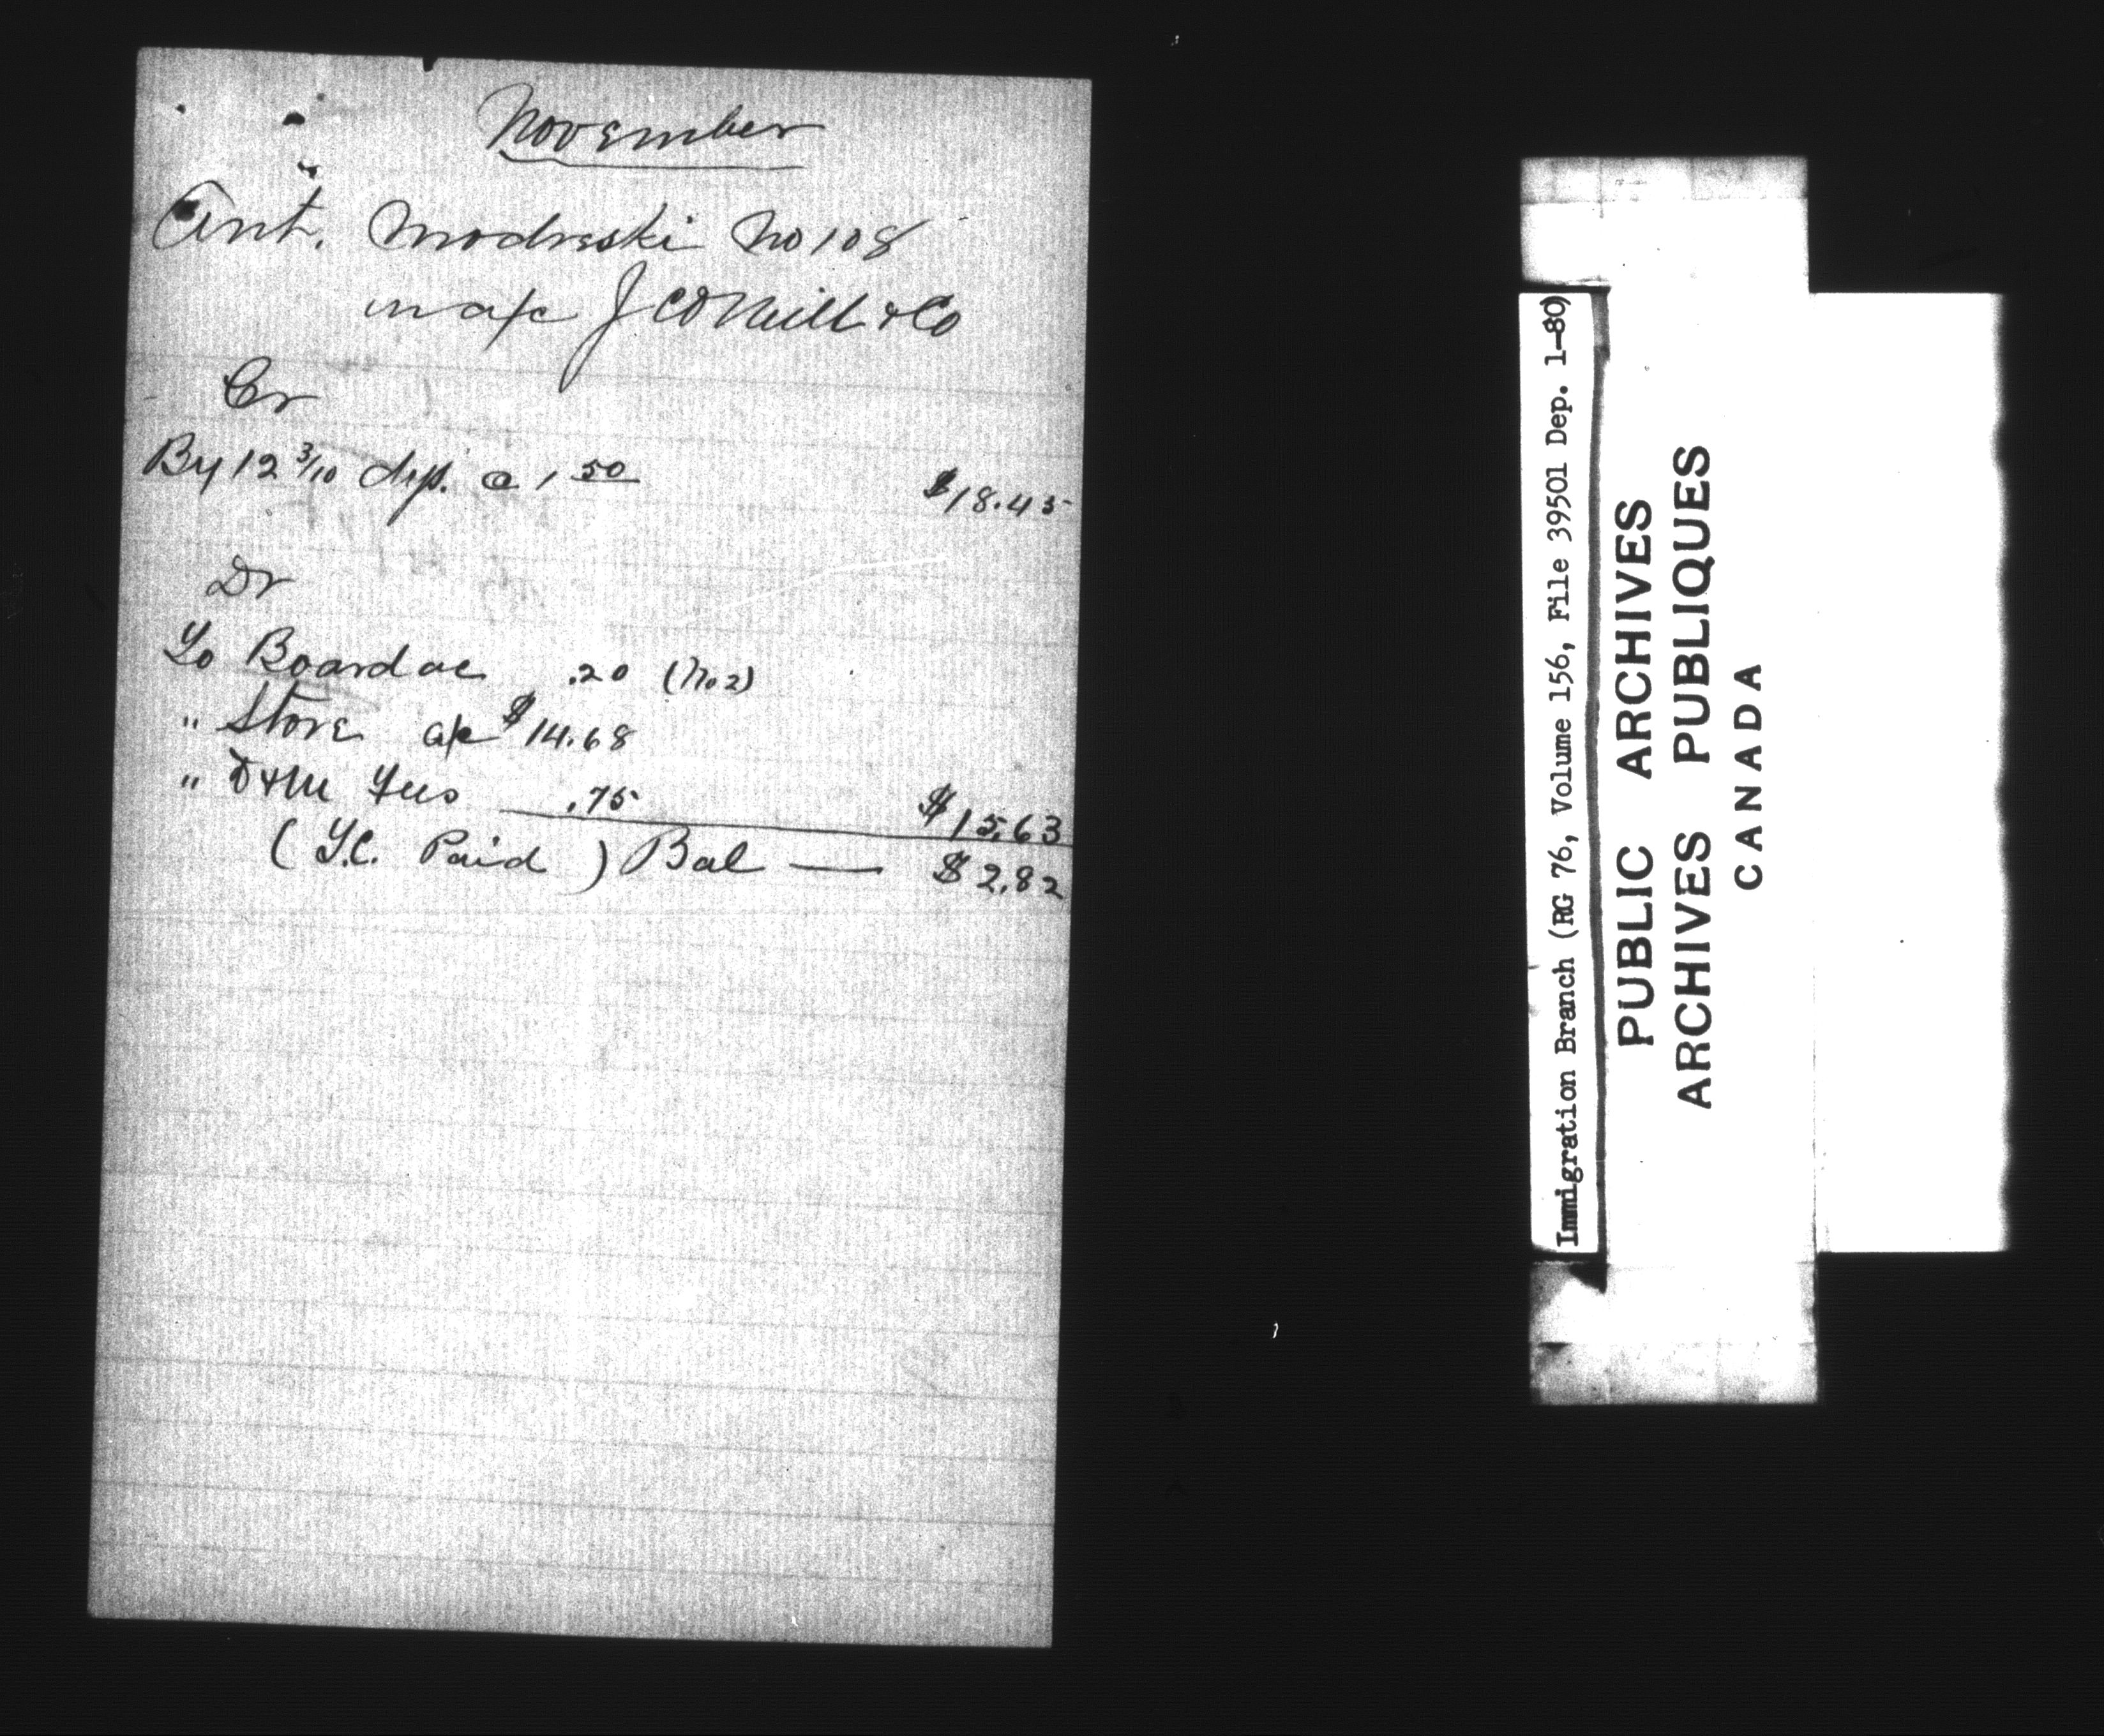 November
Ant. Modreski No 108
in a/c J C O'Neill & Co
Cr
By 12 3/10 dys. @ 1 50 $18.45
Dr
To Board ac .20 (No 2)
" Store a/c $14.68
" D+M Fees .75 $15.63
(T.C. Paid) Bal — $2.82
Immigration Branch (RG 76, Volume 156, File 39501 Dep. 1-80)
PUBLIC ARCHIVES
ARCHIVES PUBLIQUES
CANADA